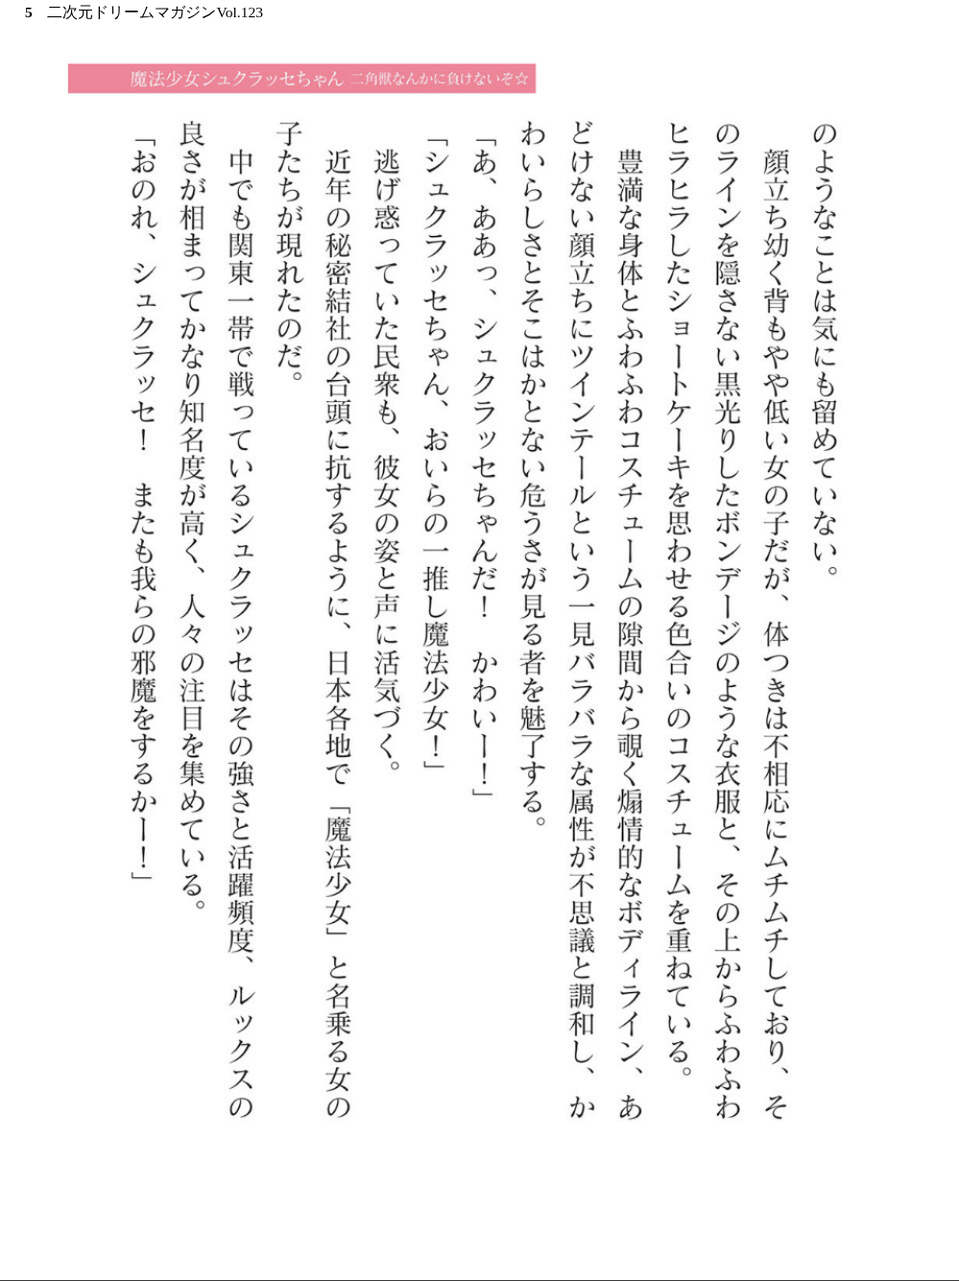 5 二次元ドリームマガジンVol.123
魔法少女シュクラッセちゃん 二角獣なんかに負けないぞ☆
のようなことは気にも留めていない。
顔立ち幼く背もやや低い女の子だが、体つきは不相応にムチムチしており、そ
のラインを隠さない黒光りしたボンデージのような衣服と、その上からふわふわ
ヒラヒラしたショートケーキを思わせる色合いのコスチュームを重ねている。
豊満な身体とふわふわコスチュームの隙間から覗く煽情的なボディライン、あ
どけない顔立ちにツインテールという一見バラバラな属性が不思議と調和し、か
わいらしさとそこはかとない危うさが見る者を魅了する。
「あ、ああっ、シュクラッセちゃんだ！　かわいー！」
「シュクラッセちゃん、おいらの一推し魔法少女！」
逃げ惑っていた民衆も、彼女の姿と声に活気づく。
近年の秘密結社の台頭に抗するように、日本各地で「魔法少女」と名乗る女の
子たちが現れたのだ。
中でも関東一帯で戦っているシュクラッセはその強さと活躍頻度、ルックスの
良さが相まってかなり知名度が高く、人々の注目を集めている。
「おのれ、シュクラッセ！　またも我らの邪魔をするかー！」